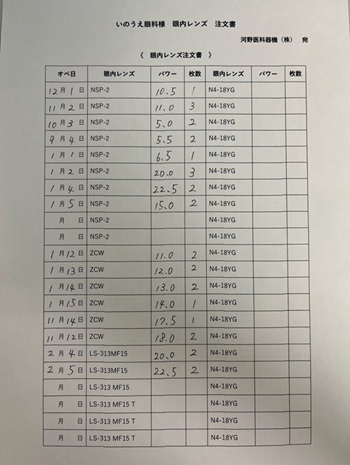 いのうえ眼科様 眼内レンズ 注文書
河野医科器機（株） 宛
《 眼内レンズ注文書 》
オペ日 眼内レンズ パワー 枚数 眼内レンズ パワー 枚数
12月1日 NSP-2 10.5 1 N4-18YG
11月2日 NSP-2 11.0 3 N4-18YG
10月3日 NSP-2 5.0 2 N4-18YG
9月4日 NSP-2 5.5 2 N4-18YG
1月1日 NSP-2 6.5 1 N4-18YG
1月2日 NSP-2 20.0 3 N4-18YG
1月4日 NSP-2 22.5 2 N4-18YG
1月5日 NSP-2 15.0 2 N4-18YG
月 日 NSP-2 N4-18YG
月 日 NSP-2 N4-18YG
1月12日 ZCW 11.0 2 N4-18YG
1月13日 ZCW 12.0 2 N4-18YG
1月14日 ZCW 13.0 2 N4-18YG
1月15日 ZCW 14.0 1 N4-18YG
11月14日 ZCW 17.5 1 N4-18YG
11月12日 ZCW 18.0 2 N4-18YG
2月4日 LS-313MF15 20.0 2 N4-18YG
2月5日 LS-313 MF15 22.5 2 N4-18YG
月 日 LS-313 MF15 N4-18YG
月 日 LS-313 MF15 T N4-18YG
月 日 LS-313 MF15 T N4-18YG
月 日 LS-313 MF15 T N4-18YG